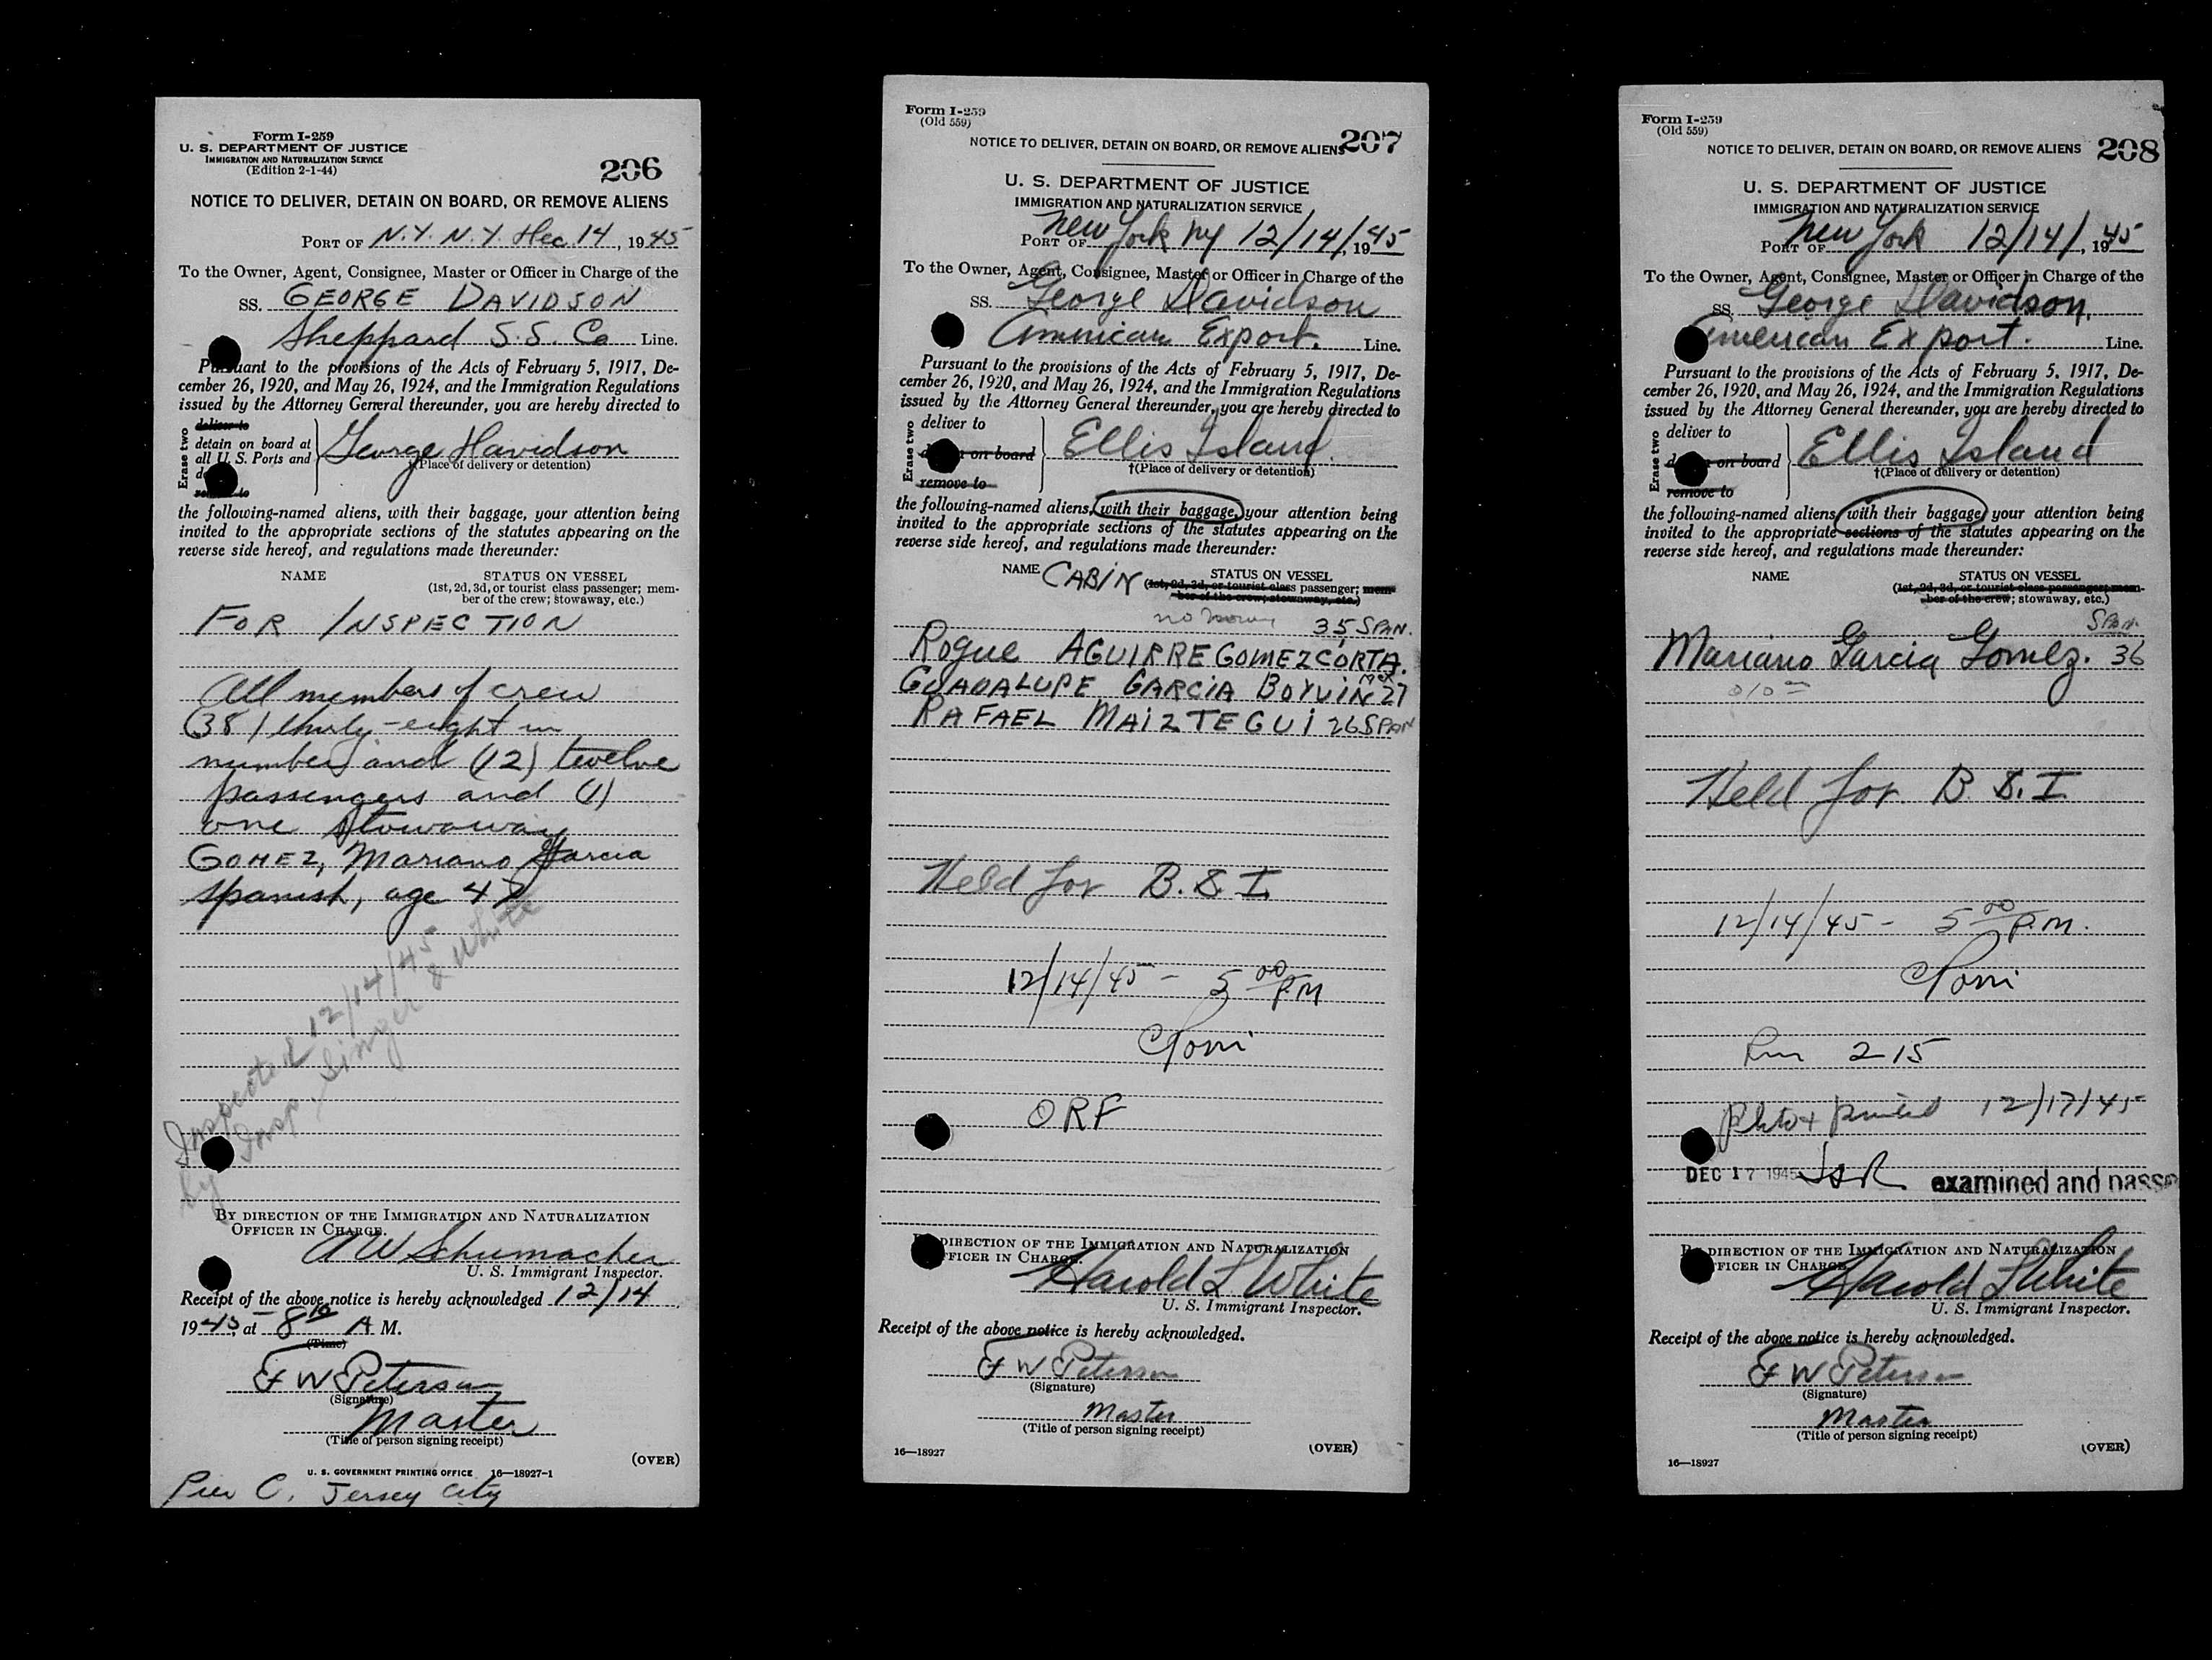 Form I-259
U. S. DEPARTMENT OF JUSTICE
IMMIGRATION AND NATURALIZATION SERVICE
(Edition 2-1-44)
206
NOTICE TO DELIVER, DETAIN ON BOARD, OR REMOVE ALIENS
PORT OF N.Y. N.Y. Dec. 14, 1945
To the Owner, Agent, Consignee, Master or Officer in Charge of the
SS. GEORGE DAVIDSON
Sheppard S.S. Co Line.
Pursuant to the provisions of the Acts of February 5, 1917, De-
cember 26, 1920, and May 26, 1924, and the Immigration Regulations
issued by the Attorney General thereunder, you are hereby directed to
Erase two
deliver to
detain on board at
all U. S. Ports and
remove to
George Davidson
†(Place of delivery or detention)
the following-named aliens, with their baggage, your attention being
invited to the appropriate sections of the statutes appearing on the
reverse side hereof, and regulations made thereunder:
NAME STATUS ON VESSEL
(1st, 2d, 3d, or tourist class passenger; mem-
ber of the crew; stowaway, etc.)
FOR INSPECTION
All members of crew
(38) thirty-eight in
number and (12) twelve
passengers and (1)
one stowaway
GOMEZ, Mariano Garcia
Spanish, age 42
Inspected 12/14/45
by Insp. Singer & White
BY DIRECTION OF THE IMMIGRATION AND NATURALIZATION
OFFICER IN CHARGE.
A W Schumacher
U. S. Immigrant Inspector.
Receipt of the above notice is hereby acknowledged 12/14
1945, at 8 10 A M.
(Time)
F W Peterson
(Signature)
Master
(Title of person signing receipt)
(OVER)
U. S. GOVERNMENT PRINTING OFFICE 16—18927-1
Pier C, Jersey City
Form I-259
(Old 559)
207
NOTICE TO DELIVER, DETAIN ON BOARD, OR REMOVE ALIENS
U. S. DEPARTMENT OF JUSTICE
IMMIGRATION AND NATURALIZATION SERVICE
PORT OF New York NY 12/14/, 1945
To the Owner, Agent, Consignee, Master or Officer in Charge of the
SS. George Davidson
American Export. Line.
Pursuant to the provisions of the Acts of February 5, 1917, De-
cember 26, 1920, and May 26, 1924, and the Immigration Regulations
issued by the Attorney General thereunder, you are hereby directed to
Erase two
deliver to
on board
remove to
Ellis Island.
†(Place of delivery or detention)
the following-named aliens, with their baggage, your attention being
invited to the appropriate sections of the statutes appearing on the
reverse side hereof, and regulations made thereunder:
NAME CABIN STATUS ON VESSEL
(1st, 2d, 3d, or tourist class passenger; mem-
ber of the crew; stowaway, etc.)
35, SPAN.
Rogue AGUIRRE GOMEZCORTA.
GUADALUPE GARCIA BOYVIN MEX 27
RAFAEL MAIZTEGUI 26 SPAN
Held for B.S.I.
12/14/45 - 5 00 P.M
ORF
BY DIRECTION OF THE IMMIGRATION AND NATURALIZATION
OFFICER IN CHARGE.
Harold L White
U. S. Immigrant Inspector.
Receipt of the above notice is hereby acknowledged.
F W Peterson
(Signature)
Master
(Title of person signing receipt)
16—18927
(OVER)
Form I-259
(Old 559)
208
NOTICE TO DELIVER, DETAIN ON BOARD, OR REMOVE ALIENS
U. S. DEPARTMENT OF JUSTICE
IMMIGRATION AND NATURALIZATION SERVICE
PORT OF New York 12/14/, 1945
To the Owner, Agent, Consignee, Master or Officer in Charge of the
SS. George Davidson.
American Export. Line.
Pursuant to the provisions of the Acts of February 5, 1917, De-
cember 26, 1920, and May 26, 1924, and the Immigration Regulations
issued by the Attorney General thereunder, you are hereby directed to
Erase two
deliver to
on board
remove to
Ellis Island
†(Place of delivery or detention)
the following-named aliens, with their baggage, your attention being
invited to the appropriate sections of the statutes appearing on the
reverse side hereof, and regulations made thereunder:
NAME STATUS ON VESSEL
(1st, 2d, 3d, or tourist class passenger; mem-
ber of the crew; stowaway, etc.)
SPAN.
Mariano Garcia Gomez. 36
Held for B.S.I.
12/14/45 - 5 00 P.M.
Rm 215
photo + printed 12/17/45
DEC 17 1945 examined and passed
BY DIRECTION OF THE IMMIGRATION AND NATURALIZATION
OFFICER IN CHARGE.
Harold L White
U. S. Immigrant Inspector.
Receipt of the above notice is hereby acknowledged.
F W Peterson
(Signature)
Master
(Title of person signing receipt)
16—18927
(OVER)